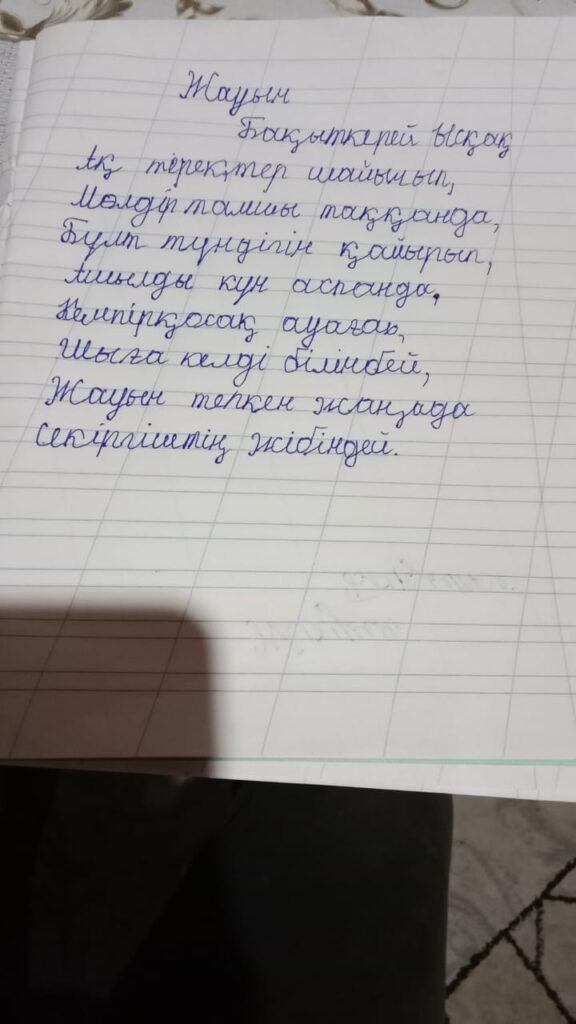 Жауын
Бақыткерей Ысқақ
Ақ теректер шайынып,
Мөлдір тамшы таққанда,
Бұлт түндігін қайырып,
Ашылды күн аспанда.
Кемпірқосақ ауағав,
Шыға келді білінбей,
Жауын тепкен жаңада
Секіргіштің жібіндей.